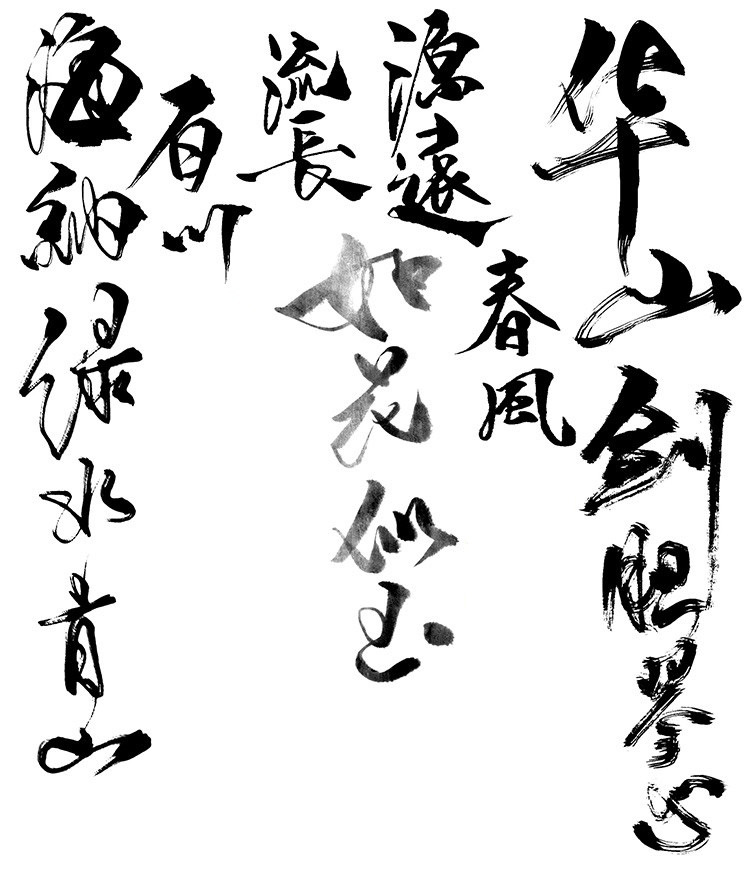 华山
剑胆琴心
春風
源遠
流長
如花似玉
海納
百川
绿水青山